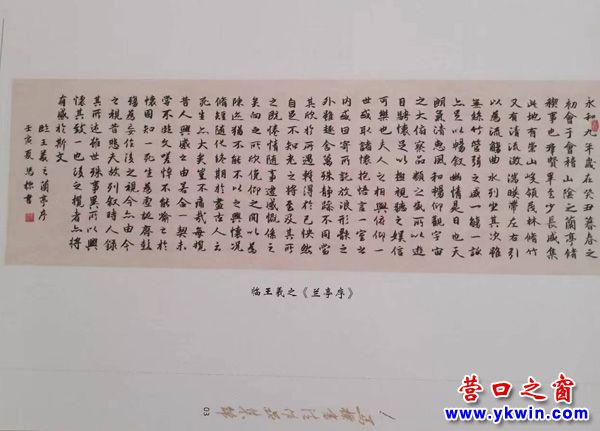 永和九年歲在癸丑暮春之
初會于會稽山陰之蘭亭脩
禊事也群賢畢至少長咸集
此地有崇山峻領茂林脩竹
又有清流激湍暎帶左右引
以為流觴曲水列坐其次雖
無絲竹管弦之盛一觴一詠
亦足以暢敘幽情是日也天
朗氣清惠風和暢仰觀宇宙
之大俯察品類之盛所以遊
目騁懷足以極視聽之娛信
可樂也夫人之相與俯仰一
世或取諸懷抱悟言一室之
內或因寄所託放浪形骸之
外雖趣舍萬殊靜躁不同當
其欣於所遇暫得於己快然
自足不知老之將至及其所
之既倦情隨事遷感慨係之
矣向之所欣俛仰之間以為
陳迹猶不能不以之興懷況
脩短隨化終期於盡古人云
死生亦大矣豈不痛哉每攬
昔人興感之由若合一契未
嘗不臨文嗟悼不能喻之於
懷固知一死生為虛誕齊彭
殤為妄作後之視今亦由今
之視昔悲夫故列敘時人錄
其所述雖世殊事異所以興
懷其致一也後之攬者亦將
有感於斯文
臨王羲之蘭亭序
壬寅夏書
临王羲之《兰亭序》
03
营口之窗
www.ykwin.com